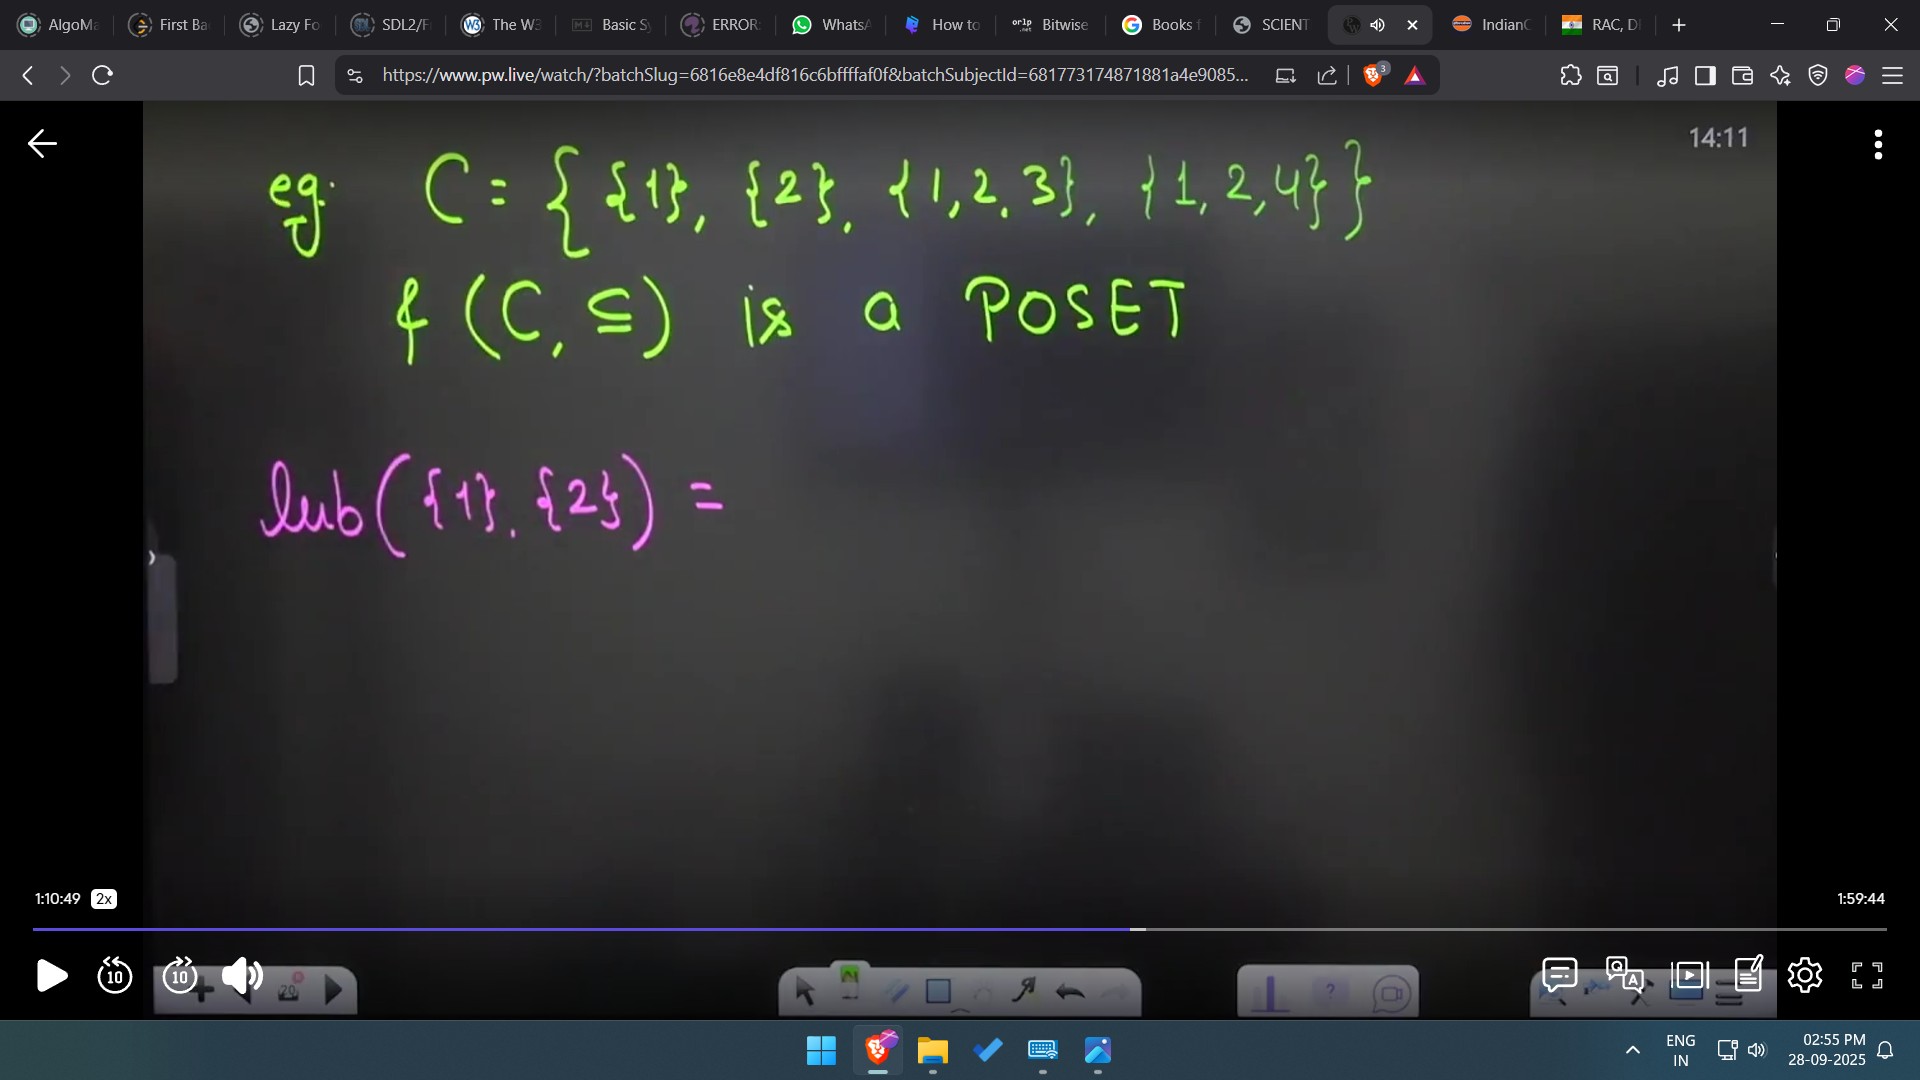 AlgoMa
First Ba
Lazy Fo
SDL2/F
The W3
Basic Sy
ERROR:
WhatsA
How to
Bitwise
Books f
SCIENT
IndianO
RAC, D
https://www.pw.live/watch/?batchSlug=6816e8e4df816c6bffffaf0f&batchSubjectId=681773174871881a4e9085...
3
14:11
eg: C = { {1}, {2}, {1,2,3}, {1,2,4} }
& (C, ⊆) is a POSET
lub({1}, {2}) =
1:10:49 2x
1:59:44
10
10
20
ENG
IN
02:55 PM
28-09-2025